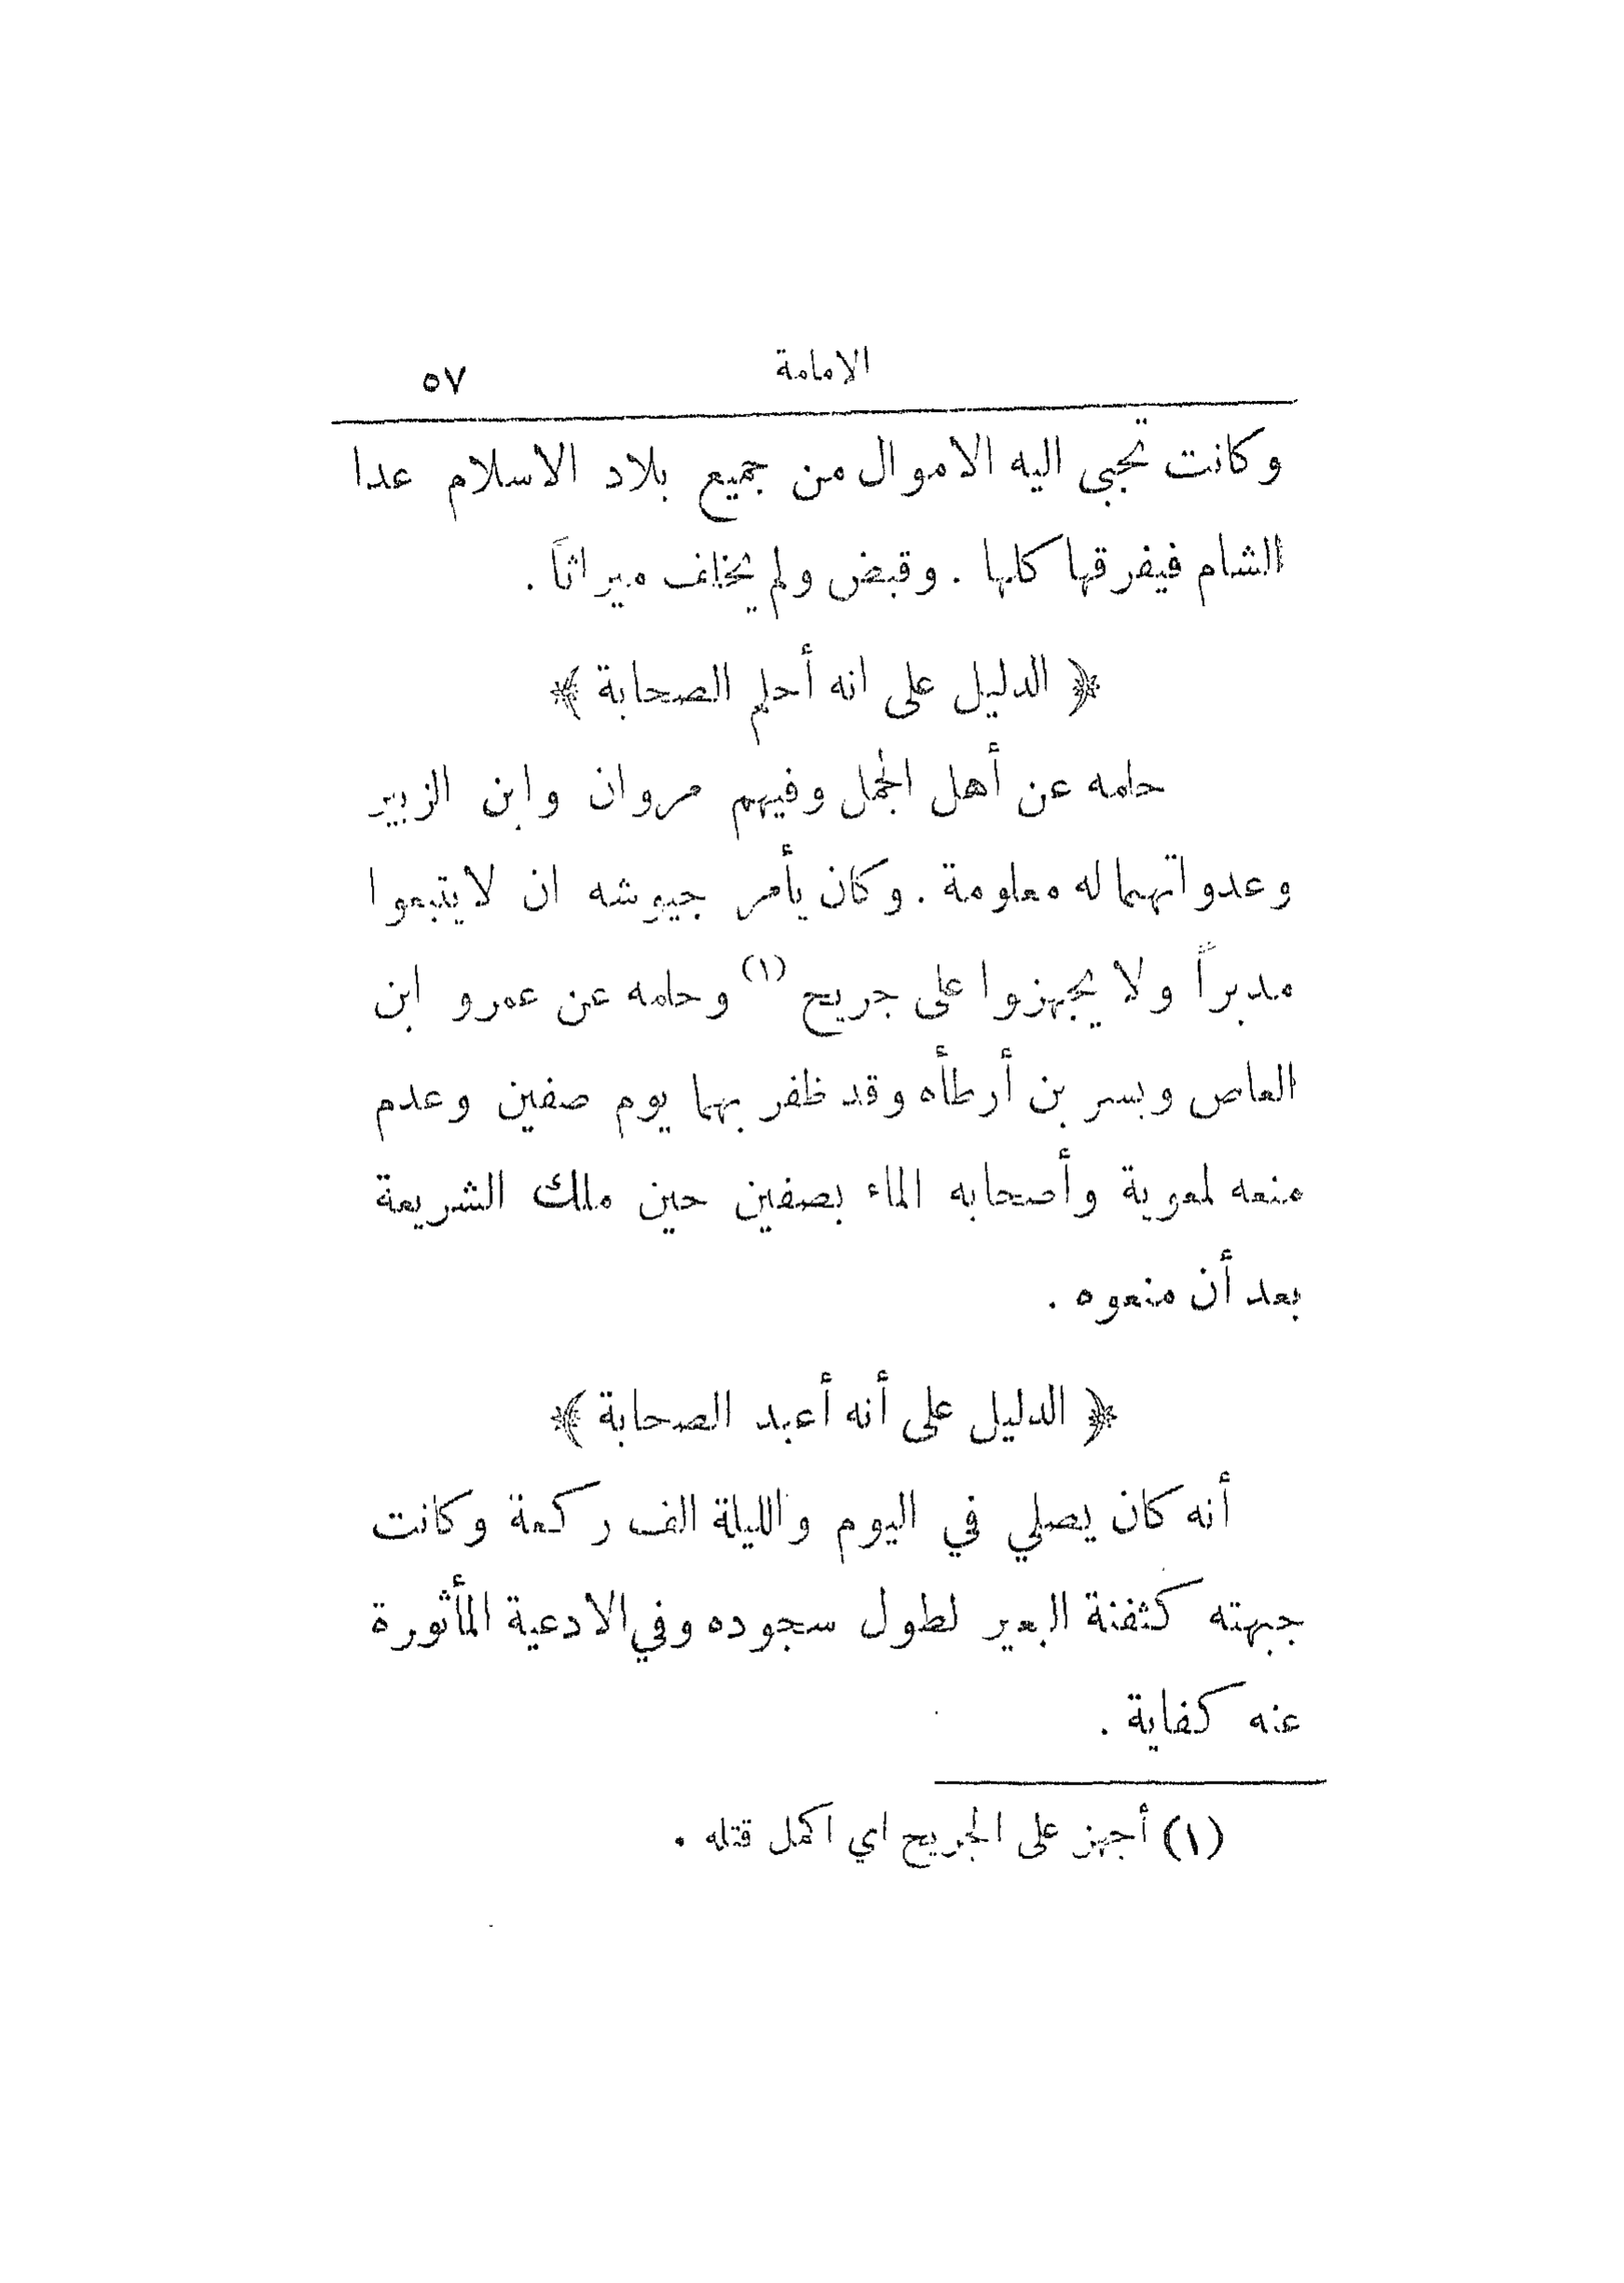 الامامة ٥٧
وكانت تجبى اليه الاموال من جميع بلاد الاسلام عدا
الشام فيفرقها كلها . وقبض ولم يخلف ميراثاً .
﴿ الدليل على انه أحلم الصحابة ﴾
حلمه عن أهل الجمل وفيهم مروان وابن الزبير
وعدواتهما له معلومة . وكان يأمر جيوشه ان لا يتبعوا
مدبراً ولا يجهزوا على جريح (١) وحلمه عن عمرو ابن
العاص وبسر بن أرطأه وقد ظفر بهما يوم صفين وعدم
منعه لمعوية وأصحابه الماء بصفين حين ملك الشريعة
بعد أن منعوه .
﴿ الدليل على أنه أعبد الصحابة ﴾
أنه كان يصلي في اليوم والليلة الف ركعة وكانت
جبهته كثفنة البعير لطول سجوده وفي الادعية المأثورة
عنه كفاية .
(١) أجهز على الجريح اي اكمل قتله .